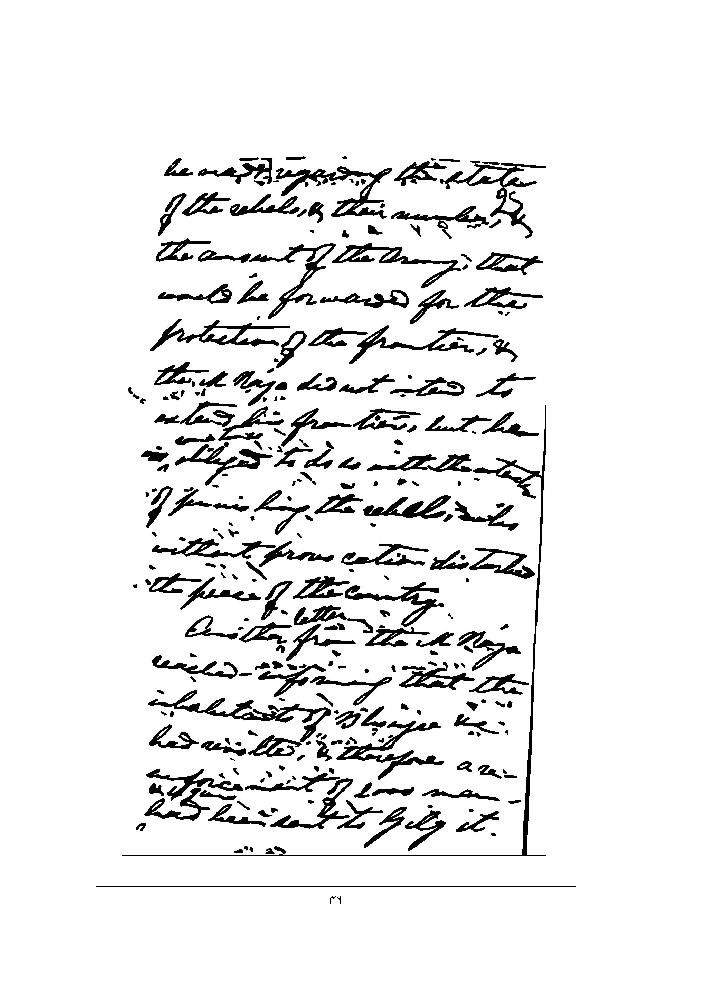 be made regarding the state
of the rebels, & their number, &
the amount of the Army, that
would be forwarded for the
protection of the frontier, &
the M Raja did not intend to
extend his frontiers, but he
was obliged to do so with the
of punishing the rebels, who
without provocation disturbed
the peace of the country.
letter
Another from the M Raja
reached informing that the
inhabitants of &c.
had revolted, & therefore a re-
inforcement of 2000 men
had been sent to Gilg it.